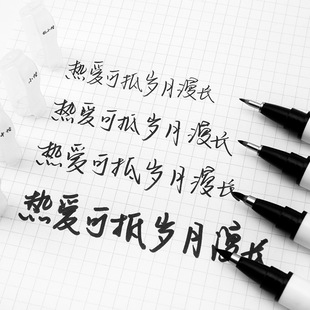 热爱可抵岁月漫长
热爱可抵岁月漫长
热爱可抵岁月漫长
热爱可抵岁月漫长